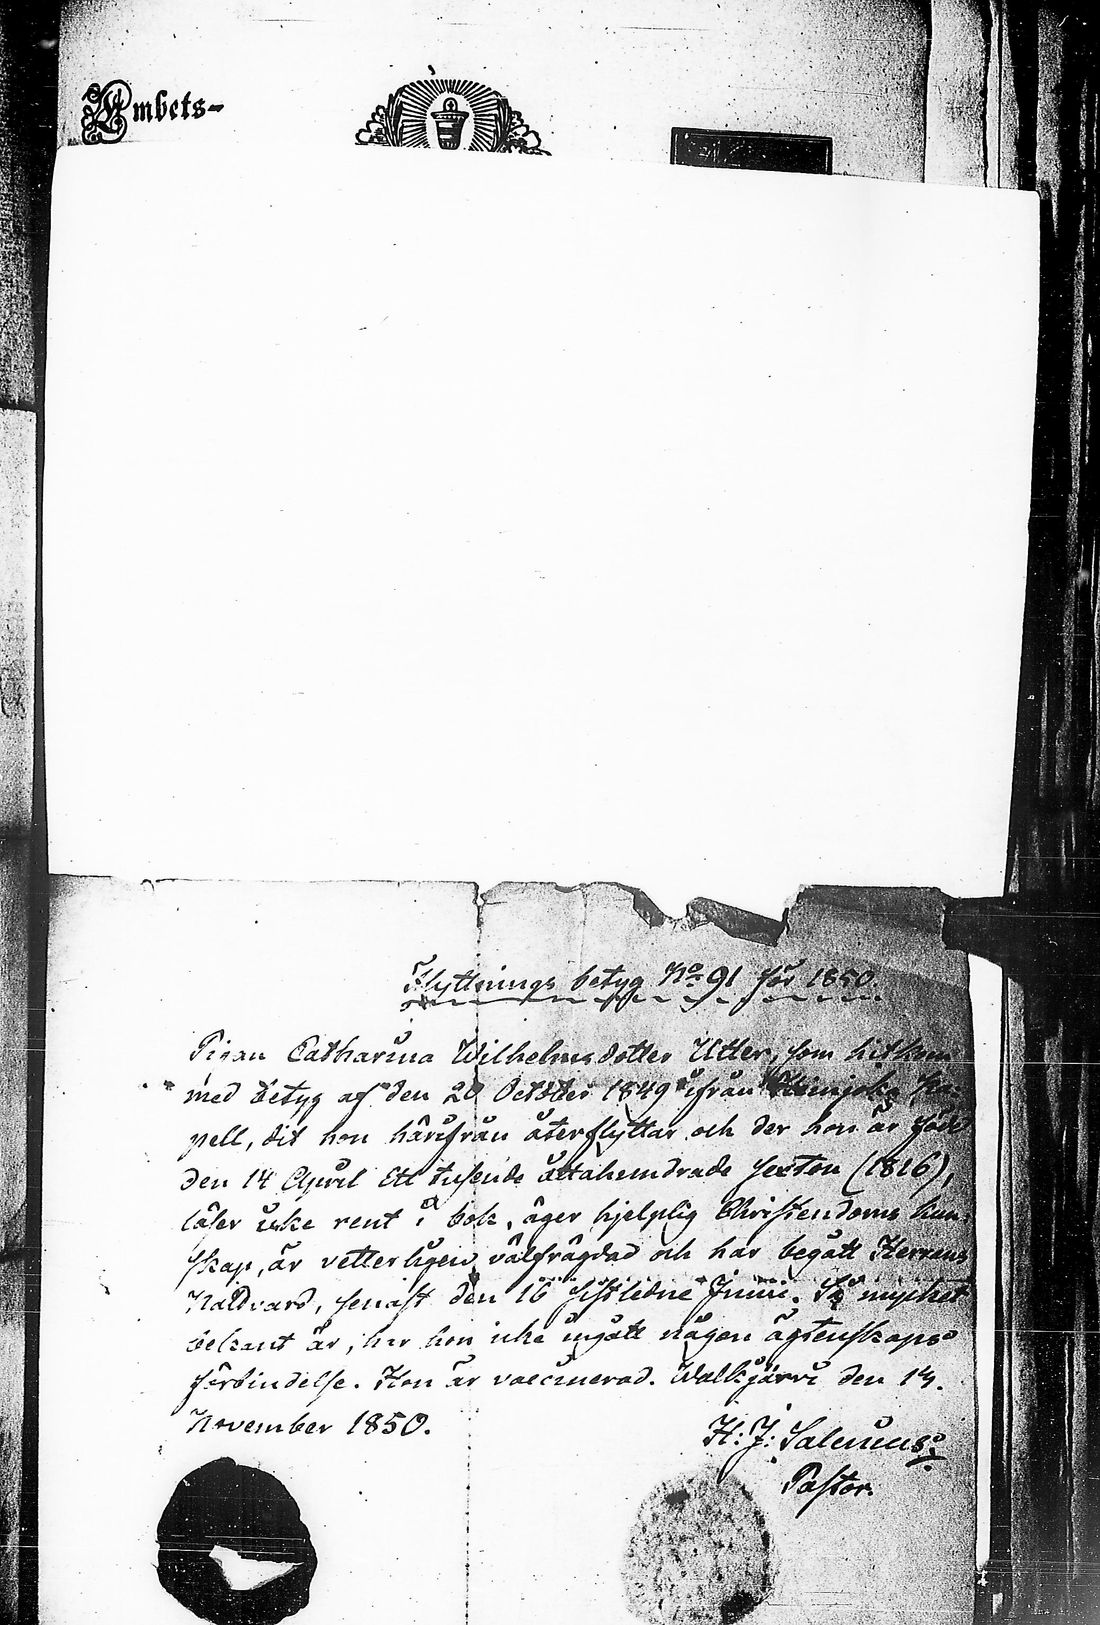 Embets-
Flyttnings betyg No 91 för 1850.
Pigan Catharina Wilhelmsdotter Utter, som hitkom
med betyg af den 20 October 1849 ifrån Heinjoki Ka-
pell, dit hon härifrån återflyttar och der hon är född
den 14 April Ett tusende åttahundrade sexton (1816),
läser icke rent i bok, äger hjelplig Christendoms kun-
skap, är vetterligen välfrägdad och har begått Herrens
Nattvard, senast den 16 sistledne Junii. Så mycket
bekant är, har hon icke ingått någon ägtenskaps
förbindelse. Hon är vaccinerad. Walkjärvi den 14.
November 1850.
H: J: Salenius
Pastor.